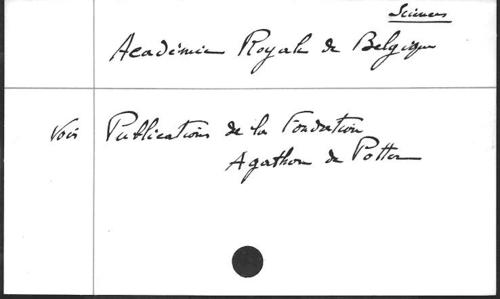 Sciences
Académie Royale de Belgique
Voir Publications de la Fondation
Agathon de Potter